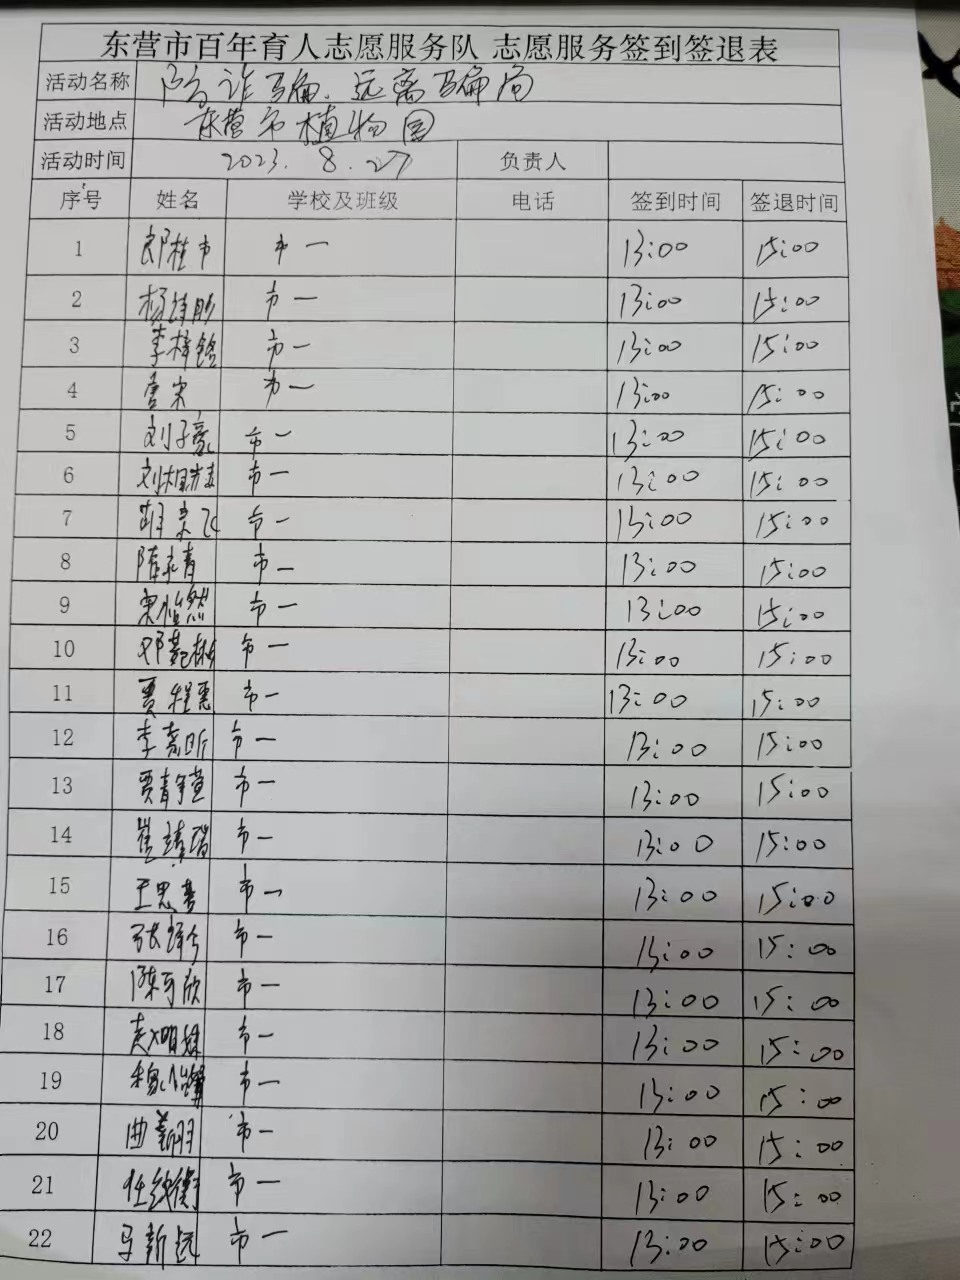 东营市百年育人志愿服务队 志愿服务签到签退表
活动名称 防诈骗.远离骗局
活动地点 东营市植物园
活动时间 2023.8.27 负责人
序号 姓名 学校及班级 电话 签到时间 签退时间
1 郎桂市 市一 13:00 15:00
2 杨诗彤 市一 13:00 15:00
3 李梓铭 市一 13:00 15:00
4 唐宋 市一 13:00 15:00
5 刘子豪 市一 13:00 15:00
6 刘 市一 13:00 15:00
7 胡 飞 市一 13:00 15:00
8 陈永青 市一 13:00 15:00
9 宋怡然 市一 13:00 15:00
10 邓 市一 13:00 15:00
11 贾程惠 市一 13:00 15:00
12 李尧昕 市一 13:00 15:00
13 贾青 市一 13:00 15:00
14 崔靖瑶 市一 13:00 15:00
15 王思 市一 13:00 15:00
16 张 市一 13:00 15:00
17 陈可欣 市一 13:00 15:00
18 赵明 市一 13:00 15:00
19 市一 13:00 15:00
20 曲 市一 13:00 15:00
21 任 衡 市一 13:00 15:00
22 马新远 市一 13:00 15:00